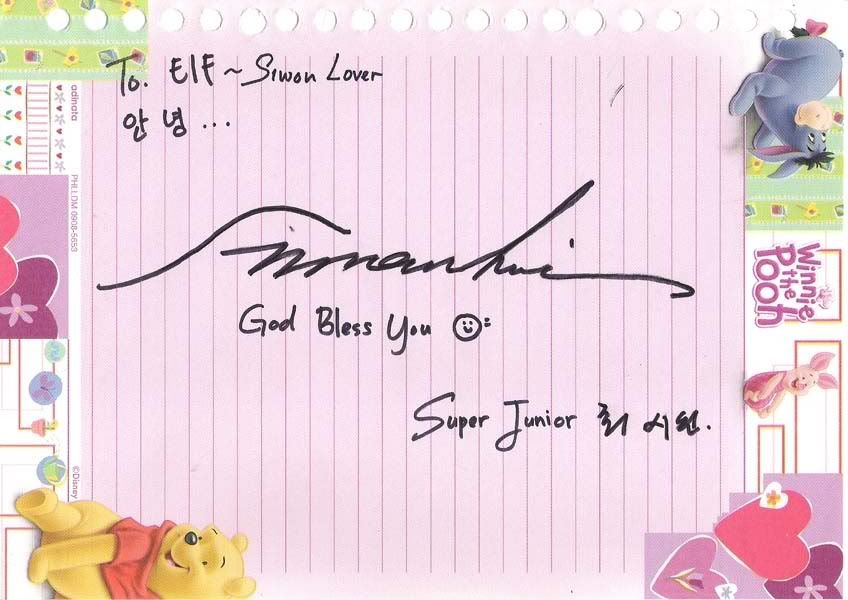 To. Elf ~ Siwon Lover
안녕...
God Bless You
Super Junior 최시원.
adinata
PHLLDM 0908-5653
©Disney
Winnie
the
Pooh